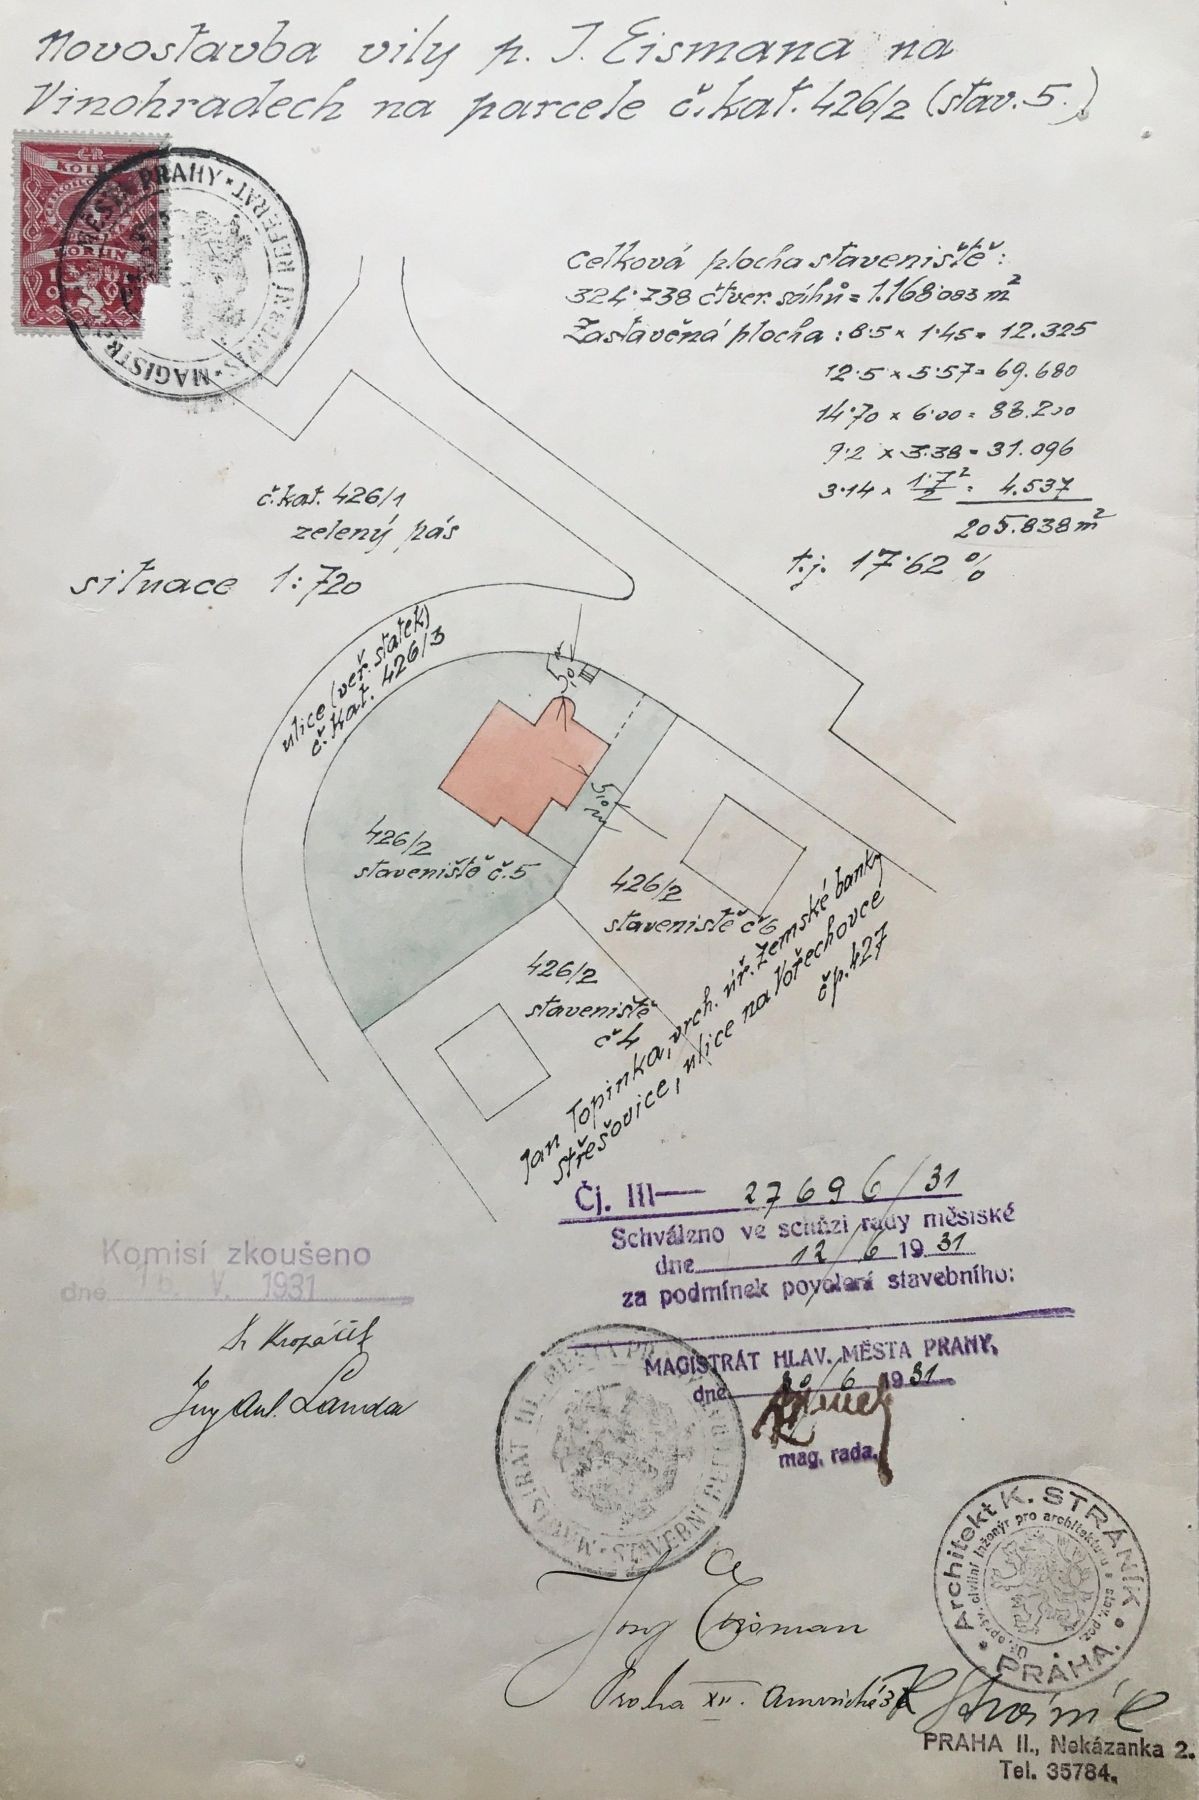 Novostavba vily p. J. Eismana na
Vinohradech na parcele č.kat. 426/2 (stav. 5.)
ČR
KOLEK
MAGISTRÁT HL. MĚSTA PRAHY • REFERÁT
Celková plocha staveniště:
324·738 čtver. sáhů = 1.168·083 m²
Zastavěná plocha: 8·5 x 1·45 = 12.325
12·5 x 5·57 = 69.680
14·70 x 6·00 = 88.200
9·2 x 3·38 = 31.096
3·14 x 1·7²/2 = 4.537
205.838 m²
t.j. 17·62 %
č.kat. 426/1
zelený pás
situace 1:720
ulice (veř. statek)
č. kat. 426/3
5,0 m
5,0 m
426/2
staveniště č.5
426/2
staveniště č 6
426/2
staveniště
č 4
Jan Topinka, vrch. úř. Zemské banky
Střešovice, ulice na Ořechovce
čp. 427
Čj. III— 27696/31
Schváleno ve schůzi rady městské
dne 12/6 1931
za podmínek povolení stavebního:
MAGISTRÁT HLAV. MĚSTA PRAHY,
dne 30/6 1931
mag. rada.
Komisí zkoušeno
dne 16. V. 1931
Dr Kropáček
Ing Ant. Landa
MAGISTRÁT HL. MĚSTA PRAHY • STAVEBNÍ
Josef Eisman
Praha XII. Americká 3
Architekt K. STRÁNÍK
civilní inženýr pro architekturu a
• PRAHA. •
K Stráník
PRAHA II., Nekázanka 2.
Tel. 35784.